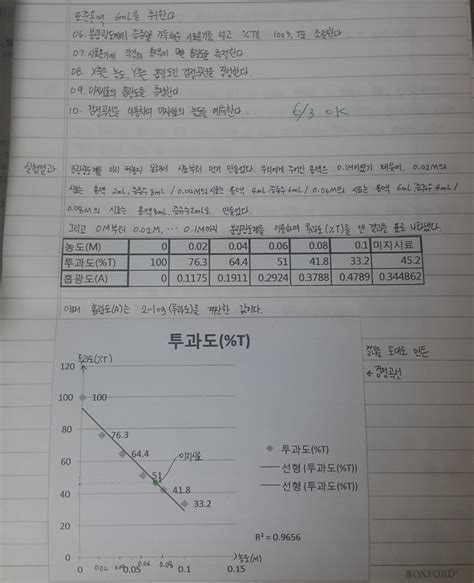 표준용액 6mL를 취한다.
06. 분광광도계에 증류수 가득채운 시료용기를 넣고 %T를 100% T로 조절한다.
07. 시료용기에 각각의 용액에 대한 흡광도를 측정한다.
08. X축은 농도, Y축은 흡광도인 검정곡선을 작성한다.
09. 미지시료의 흡광도를 측정한다.
10. 검정곡선을 이용하여 미지시료의 농도를 예측한다.
6/3 OK
실험결과
분광광도계를 미리 켜놓지 시료부터 먼저 만들었다. 우리에게 주어진 용액은 0.1M이였기 때문에, 0.02M의
시료는 용액 2mL, 증류수 8mL / 0.04M의 시료는 용액 4mL 증류수 6mL / 0.06M의 시료는 용액 6mL 증류수 4mL /
0.08M의 시료는 용액 8mL, 증류수 2mL로 만들었다.
그리고 0M부터 0.02M, ... 0.1M까지 분광광도계를 이용하여 투과도(%T)를 잰 결과를 표로 나타냈다.
농도(M) 0 0.02 0.04 0.06 0.08 0.1 미지시료
투과도(%T) 100 76.3 64.4 51 41.8 33.2 45.2
흡광도(A) 0 0.1175 0.1911 0.2924 0.3788 0.4789 0.344862
이때 흡광도(A)는 2-log(투과도)로 계산한 값이다.
투과도(%T)
투과도(%T)
120
100
80
60
40
20
0
100
76.3
64.4
51
41.8
33.2
미지시료
투과도(%T)
선형 (투과도(%T))
선형 (투과도(%T))
R² = 0.9656
0 0.02 0.04 0.05 0.06 0.08 0.1 0.15
농도(M)
결과를 토대로 만든
검정곡선
OXFORD